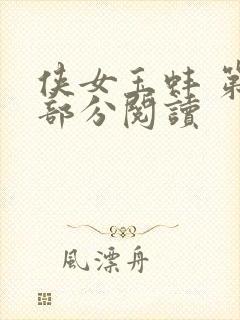 侠女玉蚌 第
部分閱讀
風漂舟